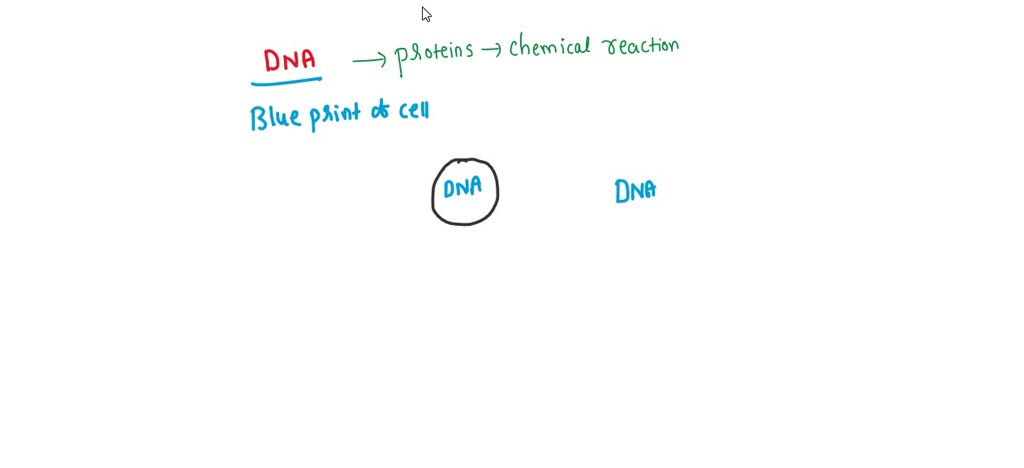 DNA → proteins → chemical reaction
Blue print of cell
DNA DNA